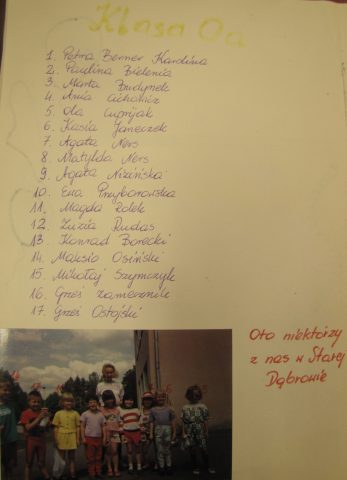 Klasa Oa
1. Petra Berner Karolina
2. Paulina Bielenia
3. Marta Budynek
4. Ania Cicholicz
5. Ola Cupryjak
6. Kasia Janeczek
7. Agata Ners
8. Matylda Ners
9. Agata Nizińska
10. Ewa Przyborowska
11. Magda Rolek
12. Zuzia Rudas
13. Konrad Borecki
14. Maksio Osiński
15. Mikołaj Szymczyk
16. Grześ Zamecznik
17. Grześ Ostojski
Oto niektórzy
z nas w Starej
Dąbrowie